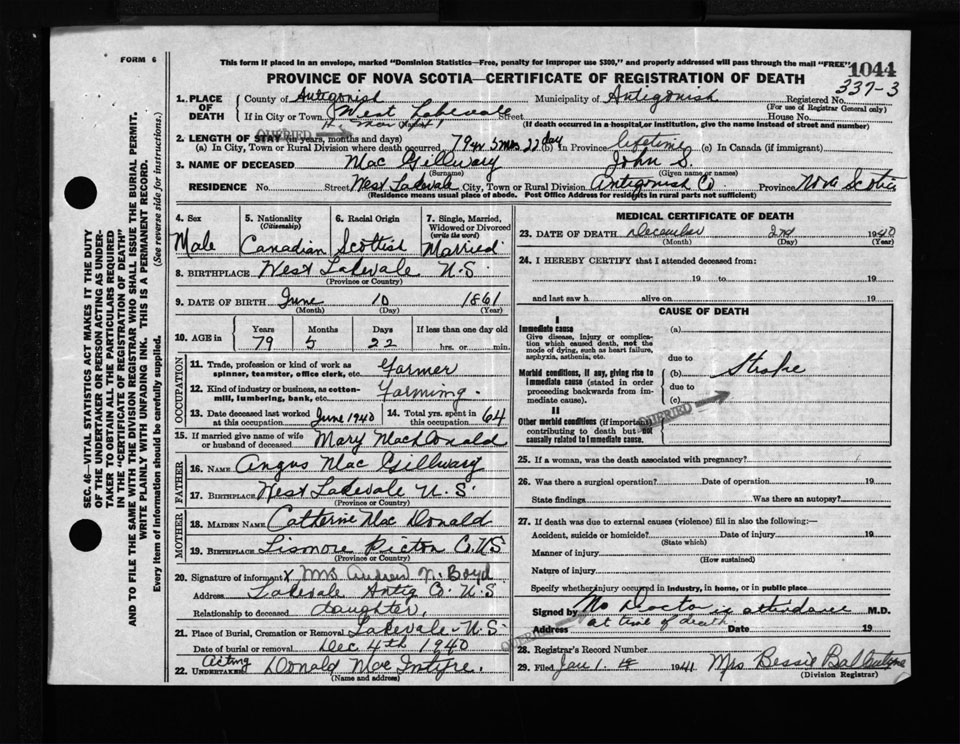 FORM 6
This form if placed in an envelope, marked "Dominion Statistics—Free, penalty for improper use $300," and properly addressed will pass through the mail "FREE"
PROVINCE OF NOVA SCOTIA—CERTIFICATE OF REGISTRATION OF DEATH
1044
337-3
1. PLACE OF DEATH
County of Antigonish Municipality of Antigonish Registered No.
(For use of Registrar General only)
If in City or Town West Lakevale Street House No.
(If death occurred in a hospital or institution, give the name instead of street and number)
QUERIED
2. LENGTH OF STAY (in years, months and days)
(a) In City, Town or Rural Division where death occurred 79 yr 5 mos 22 day (b) In Province lifetime (c) In Canada (if immigrant)
3. NAME OF DECEASED Mac Gillivary John S.
(Surname) (Given name or names)
RESIDENCE No. Street West Lakevale City, Town or Rural Division Antigonish Co Province Nova Scotia
(Residence means usual place of abode. Post Office Address for residents in rural parts not sufficient)
4. Sex Male
5. Nationality (Citizenship) Canadian
6. Racial Origin Scottish
7. Single, Married, Widowed or Divorced (write the word) Married
8. BIRTHPLACE West Lakevale N.S.
(Province or Country)
9. DATE OF BIRTH June 10 1861
(Month) (Day) (Year)
10. AGE in Years Months Days If less than one day old
79 5 22 hrs. or min.
OCCUPATION
11. Trade, profession or kind of work as spinner, teamster, office clerk, etc. Farmer
12. Kind of industry or business, as cotton-mill, lumbering, bank, etc. Farming
13. Date deceased last worked at this occupation June 1940 14. Total yrs. spent in this occupation 64
15. If married give name of wife or husband of deceased Mary MacDonald
FATHER
16. NAME Angus Mac Gillivary
17. BIRTHPLACE West Lakevale N.S.
(Province or Country)
MOTHER
18. MAIDEN NAME Catherine Mac Donald
19. BIRTHPLACE Lismore Pictou Co. N.S
(Province or Country)
20. Signature of informant X Mrs Andrew N. Boyd
Address Lakevale Antig Co. N.S
Relationship to deceased daughter,
21. Place of Burial, Cremation or Removal Lakevale N.S.
Date of burial or removal Dec 4th 1940
22. Acting UNDERTAKER Donald MacIntyre.
(Name and address)
MEDICAL CERTIFICATE OF DEATH
23. DATE OF DEATH December 2nd 1940
(Month) (Day) (Year)
24. I HEREBY CERTIFY that I attended deceased from:
19 to 19
and last saw h alive on 19
CAUSE OF DEATH
I
Immediate cause (a)
Give disease, injury or complication which caused death, not the mode of dying, such as heart failure, asphyxia, asthenia, etc.
due to
Morbid conditions, if any, giving rise to immediate cause (stated in order proceeding backwards from immediate cause).
(b) Stroke
due to
(c)
QUERIED
II
Other morbid conditions (if important) contributing to death but not causally related to immediate cause.
25. If a woman, was the death associated with pregnancy?
26. Was there a surgical operation? Date of operation 19
State findings Was there an autopsy?
27. If death was due to external causes (violence) fill in also the following:—
Accident, suicide or homicide? Date of injury 19
(State which)
Manner of injury
(How sustained)
Nature of injury
Specify whether injury occurred in industry, in home, or in public place
Signed by No Doctor in attendance M.D.
Address at time of death Date 19
QUERIED
28. Registrar's Record Number
29. Filed Jan 1 1941 Mrs Bessie
(Division Registrar)
SEC. 46—VITAL STATISTICS ACT MAKES IT THE DUTY
OF THE UNDERTAKER OR PERSON ACTING AS UNDER-
TAKER TO OBTAIN ALL THE PARTICULARS REQUIRED
IN THE "CERTIFICATE OF REGISTRATION OF DEATH"
AND TO FILE THE SAME WITH THE DIVISION REGISTRAR WHO SHALL ISSUE THE BURIAL PERMIT.
WRITE PLAINLY WITH UNFADING INK. THIS IS A PERMANENT RECORD.
Every item of information should be carefully supplied. (See reverse side for instructions.)